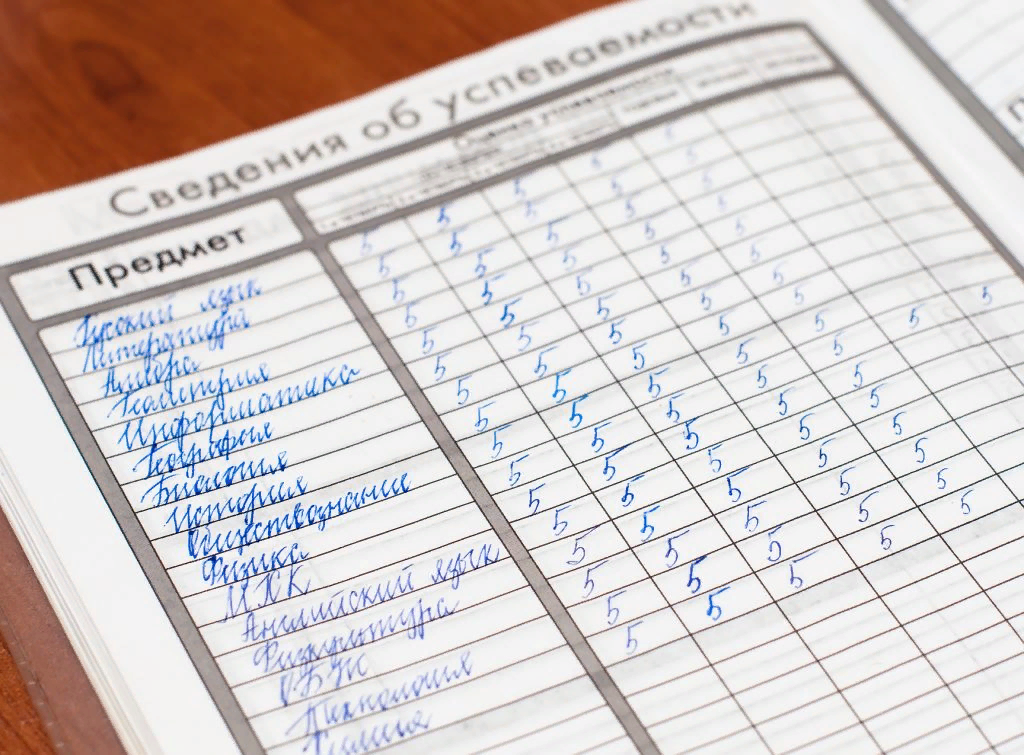 Сведения об успеваемости
Предмет
Русский язык 5 5 5 5 5
Литература 5 5 5 5 5
Алгебра 5 5 5 5 5
Геометрия 5 5 5 5 5
Информатика 5 5 5 5 5
География 5 5 5 5 5
Биология 5 5 5 5 5
История 5 5 5 5 5
Обществознание 5 5 5 5 5
Физика 5 5 5 5 5
МХК 5 5 5 5 5
Английский язык 5 5 5 5 5
Физкультура 5 5 5 5 5
ОБЖ 5 5 5 5 5
Технология 5 5 5 5 5
Химия